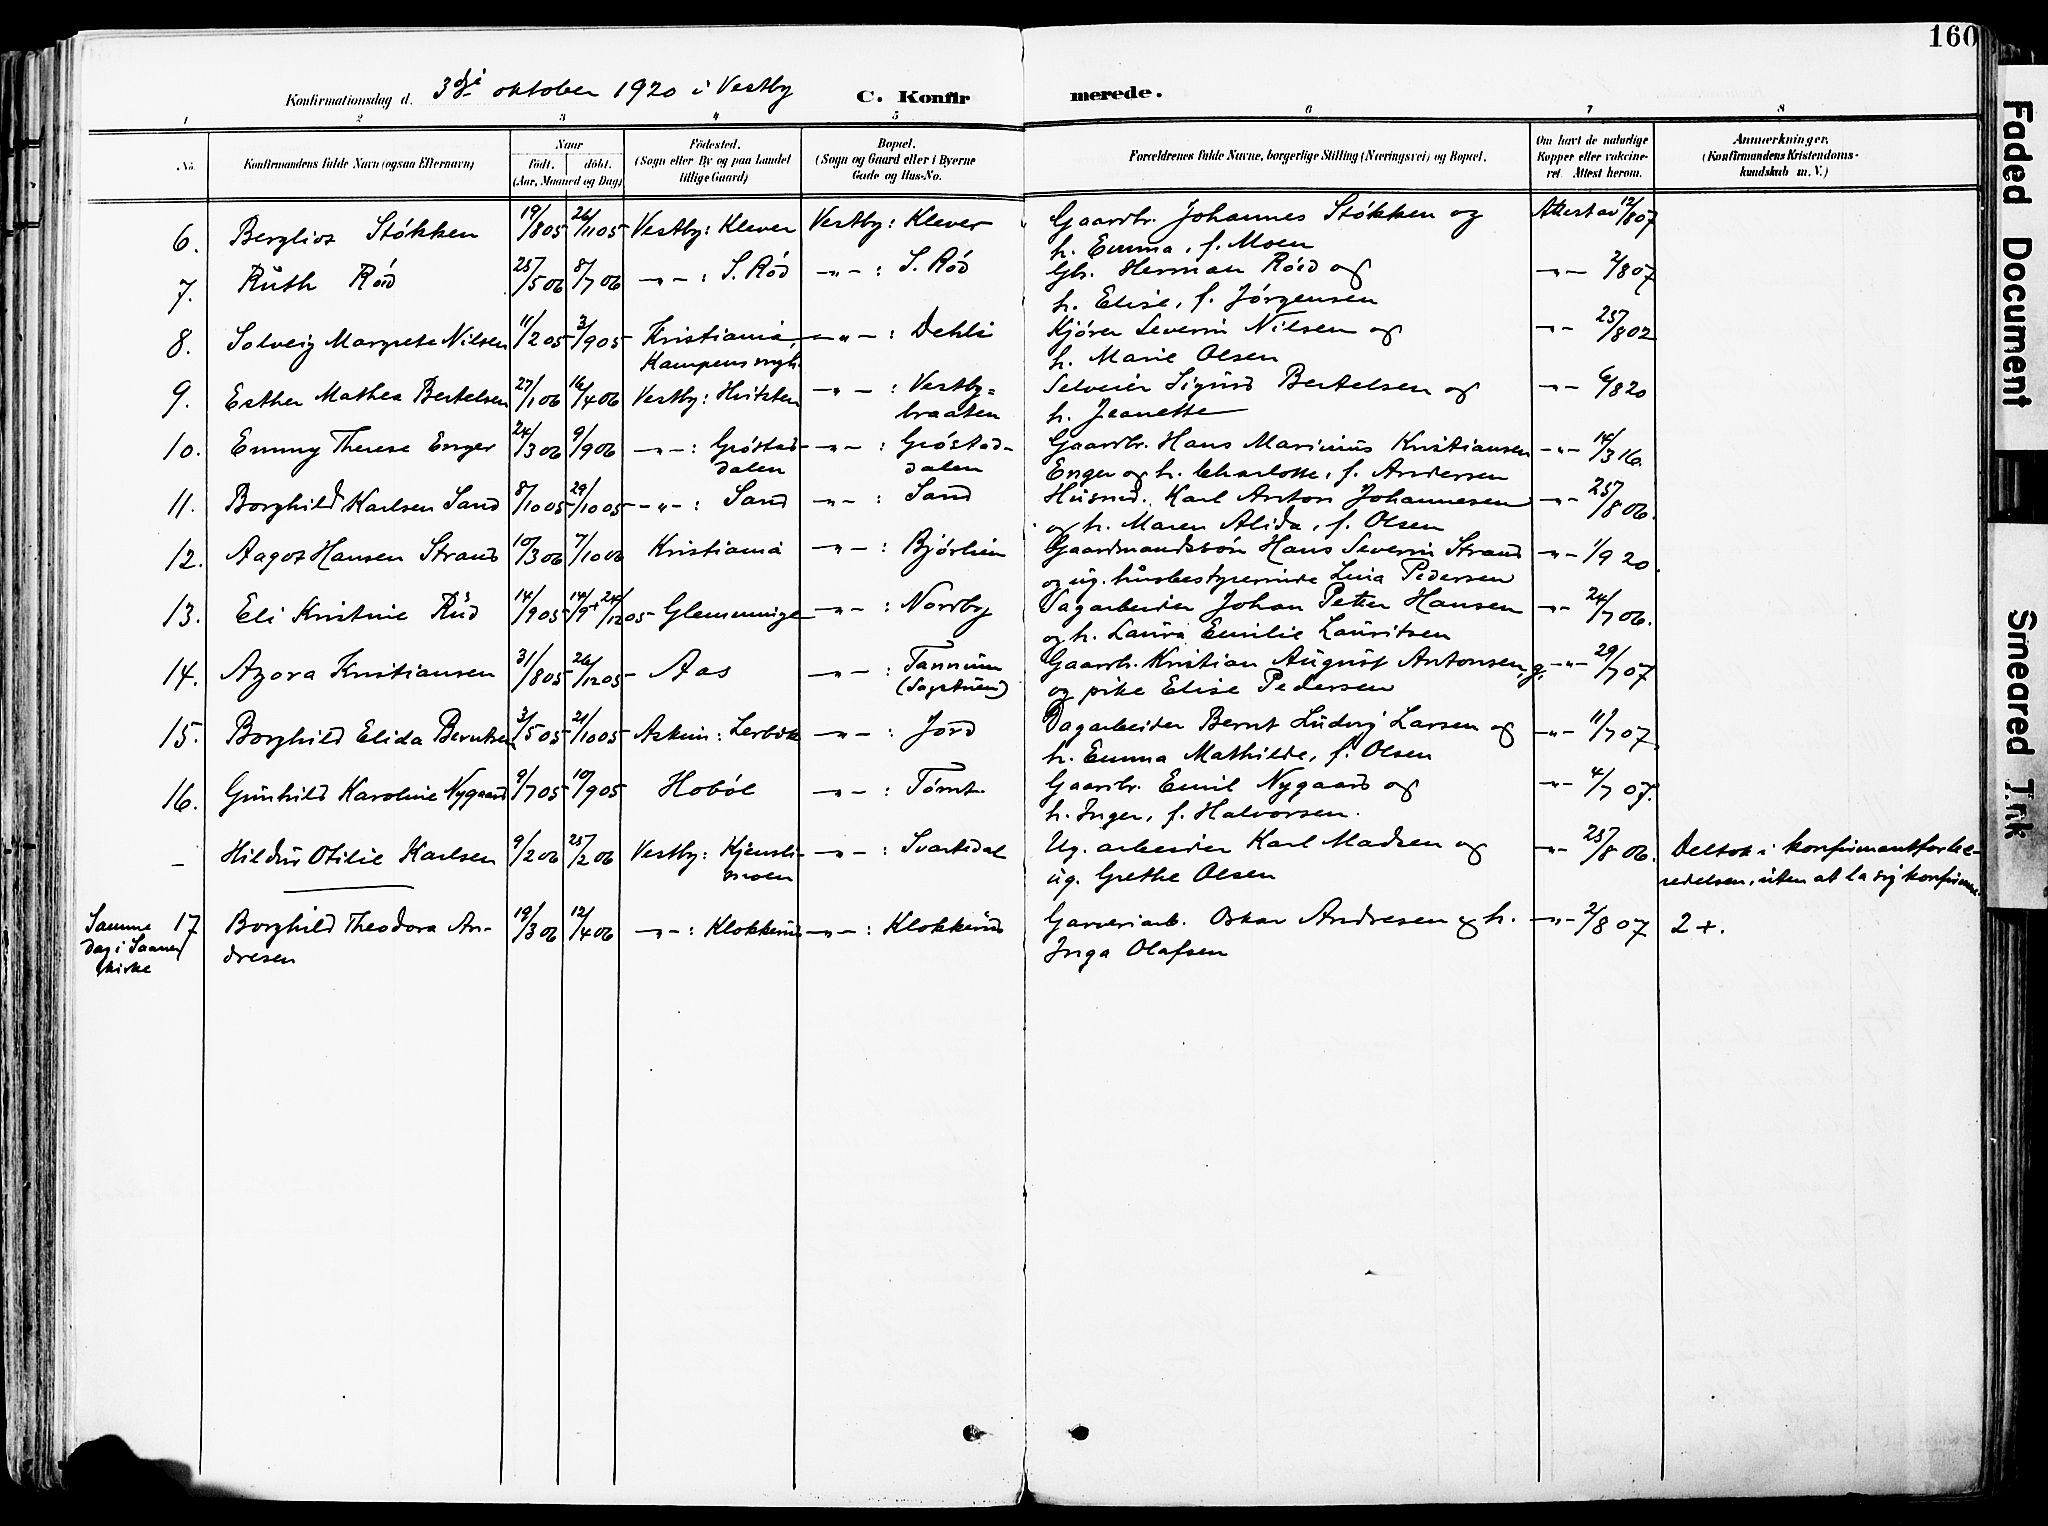 160
Konfirmationsdag d. 3die oktober 1920 i Vestby C. Konfirmerede.
1 2 3 4 5 6 7 8
No. Konfirmandens fulde Navn (ogsaa Efternavn) Naar født. døbt. (Aar, Maaned og Dag) Fødested. (Sogn eller By og paa Landet tillige Gaard) Bopæl. (Sogn og Gaard eller i Byerne Gade og Hus-No. Forældrenes fulde Navne, borgerlige Stilling (Næringsvei) og Bopæl. Om havt de naturlige Kopper eller vaccineret. Attest herom. Anmærkninger. (Konfirmandens Kristendomskundskab m. V.)
6. Bergliot Støkken 19/8 05 26/11 05 Vestby: Klever Vestby: Klever Gaardbr. Johannes Støkken og Attest av 12/8 07
h. Emma, f. Moen
7. Ruth Röd 25/5 06 8/7 06 -"-: S. Rød -"-: S. Rød Gbr. Herman Röd og -"- 2/8 07
h. Elise, f. Jörgensen
8. Solveig Margrete Nilsen 11/2 05 3/9 05 Kristiania, -"-: Dehli Kjører Severin Nilsen og -"- 25/8 02
Kampens mgh. h. Marie Olsen
9. Esther Mathea Bertelsen 27/1 06 16/4 06 Vestby: Hvitsten -"-: Vestby= Selveier Sigurd Bertelsen og -"- 6/8 20
braaten h. Jeanette
10. Emmy Therese Enger 24/3 06 9/9 06 -"-: Grøstad- -"-: Grøstad- Gaardbr. Hans Marinius Kristiansen -"- 14/3 16.
dalen dalen Enger og h. Charlotte, f. Andersen
11. Borghild Karlsen Sand 8/10 05 29/10 05 -"-: Sand -"-: Sand Husmd. Karl Anton Johannesen -"- 25/8 06.
og h. Maren Alida, f. Olsen
12. Aagot Hansen Strand 10/3 06 7/10 06 Kristiania -"-: Bjørlien Gaardmandssøn Hans Severin Strand -"- 1/9 20.
og ug. husbestyrerinde Lina Pedersen
13. Eli Kristine Rud 14/9 05 14/9 + 24/12 05 Glemminge -"-: Nordby Dagarbeider Johan Petter Hansen -"- 24/7 06.
og h. Laura Emilie Lauritsen
14. Azora Kristiansen 31/8 05 26/12 05 Aas -"-: Tannum Gaardb. Kristian August Antonsen, g. -"- 29/7 07
(Sagstuen) og pike Elise Pedersen
15. Borghild Elida Berntsen 3/5 05 21/10 05 Askim: Lerbæk -"-: Jord Dagarbeider Bernt Ludvig Larsen og -"- 11/7 07.
h. Emma Mathilde, f. Olsen
16. Gunhild Karoline Nygaard 9/7 05 10/9 05 Hobøl -"-: Tomt. Gaardbr. Emil Nygaard og -"- 4/7 07.
h. Inger, f. Halvorsen.
- Hildur Otilie Karlsen 9/2 06 25/2 06 Vestby: Kjensli- -"-: Svartdal Ug. arbeider Karl Madsen og -"- 25/8 06. Deltok i konfirmantforbe-
moen ug. Grethe Olsen redelsen, uten at la sig konfirmere.
Samme 17 Borghild Theodora An- 19/3 06 12/4 06 -"-: Klokkerud -"-: Klokkerud Garveriarb. Oskar Andresen og h. -"- 2/8 07 2+.
dag i Saaner dresen Inga Olafsen
kirke
Faded Document
Smeared Ink